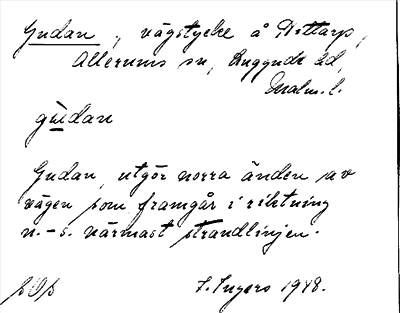 Gudan, vägstycke å Dottarp,
Allerums sn, Luggude hd,
Malm. l.
gùdan
Gudan, utgör norra änden av
vägen som framgår i riktning
n.-s. närmast strandlinjen.
I. Ingers 1948.